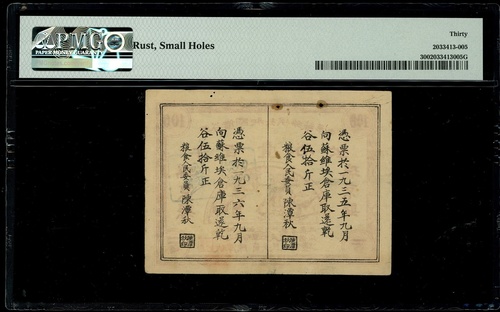 PMG
PAPER MONEY GUARANTY
Rust, Small Holes
Thirty
2033413-005
3002033413005G
憑票於一九三五年九月
向蘇維埃倉庫取還乾
谷伍拾斤正
粮食人民委員 陳潭秋
憑票於一九三六年九月
向蘇維埃倉庫取還乾
谷伍拾斤正
粮食人民委員 陳潭秋